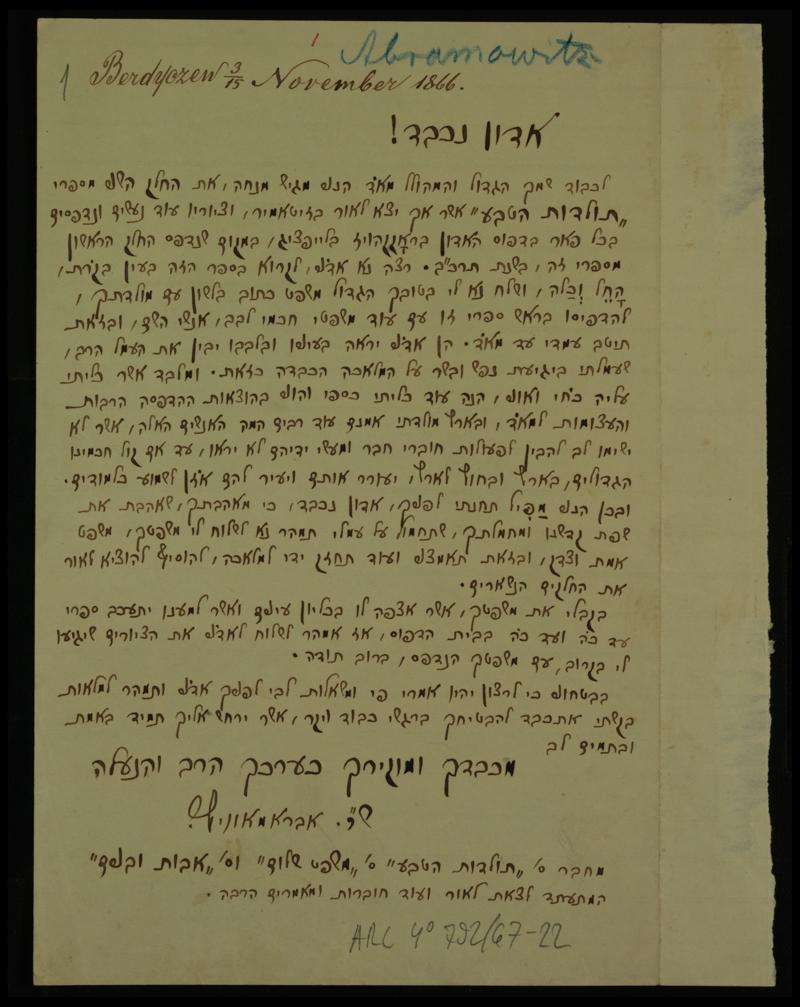 Abramowitz
1 Berdyczew 3/15 November 1866.
אדון נכבד!
לכבוד שמך הגדול והמהולל מאד הנני מגיש מנחה, את החלק השני מספרי
„תולדות הטבע” אשר אך יצא לאור בזיטאמיר, וציוריו עוד נעשים ונדפסים
בכל פאר בדפוס האדון בראָקהויז בלייפציג, במקום שנדפס החלק הראשון
מספרי זה, בשנת תרכ״ב. רצה נא אדני, לקרוא בספר הזה בעין בקרת,
הָחֵל וְכַלֵּה, ושלח נא לי בטובך הגדול משפט כתוב בלשון עם מולדתך,
להדפיסו בראש ספרי זו עם עוד משפטי חכמי לבב, אנשי השם, ובזאת
תיטב עמדי עד מאד. הן אדני יראה בעיניו ובלבבו יבין את העמל הרב,
שעמלתי ביגיעת נפש ובשר על המלאכה הכבדה כזאת. ומלבד אשר כליתי
עליה כחי ואוני, הנה עוד כליתי כספי והוני בהוצאות ההדפסה הרבות
והעצומות למאד, ובארץ מולדתי אמנם עוד רבים המה האנשים האלה, אשר לא
ישימו לב להבין לפעולות חוברי חבר ומעשי ידיהם לא יראו, עד אם קול חכמינו
הגדולים, בארץ ובחוץ לארץ, יעורר אותם ויעיר להם אזן לשמוע כלמודים.
ובכן הנני מַפִּיל תחנתי לפניך, אדון נכבד, כי מאהבתך, שאהבת את
שפת קדשנו ומחמלתך, שתחמול על עמלי תמהר נא לשלוח לי משפטך, משפט
אמת וצדק, ובזאת תאמצני ועוד תחזק ידי למלאכה, להוסיף להוציא לאור
את החלקים הנשארים.
בקבלי את משפטך, אשר אצפה לו בכליון עינים ואשר למענו יתעכב ספרי
עד כה ועד כה בבית הדפוס, אז אמהר לשלוח לאדני את הציורים שיגיעו
לי בקרוב, עם משפטך הנדפס, ברוב תודה.
בבטחוני כי לרצון יהיו אמרי פי ומשאלות לבי לפניך אדני ותמהר למלאות
בקשתי אתכבד להבטיחך ברגשי כבוד ויקר, אשר ירחש אליך תמיד באמת
ובתמים לב
מכבדך ומוקירך כערכך הרב והנעלה
ש״י. אבראמאוויץ.
מחבר ס׳ „תולדות הטבע” ס׳ „משפט שלום” וס׳ „אבות ובנים”
המתעתד לצאת לאור ועוד חוברות ומאמרים הרבה.
ARC 4° 792/G7-22